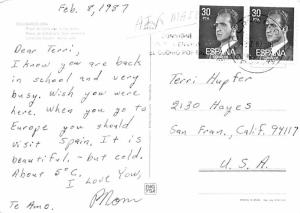 Feb. 8, 1987
AIR MAIL
30
PTA
ESPAÑA
30
PTA
ESPAÑA
Dear Terri,
I know you are back
in school and very
busy. Wish you were
here. When you go to
Europe you should
visit Spain. It is
beautiful, - but cold.
About 5°C.
I Love You,
Te Amo.
Mom
Terri Hupfer
2130 Hayes
San Fran., Calif. 94117
U. S. A.